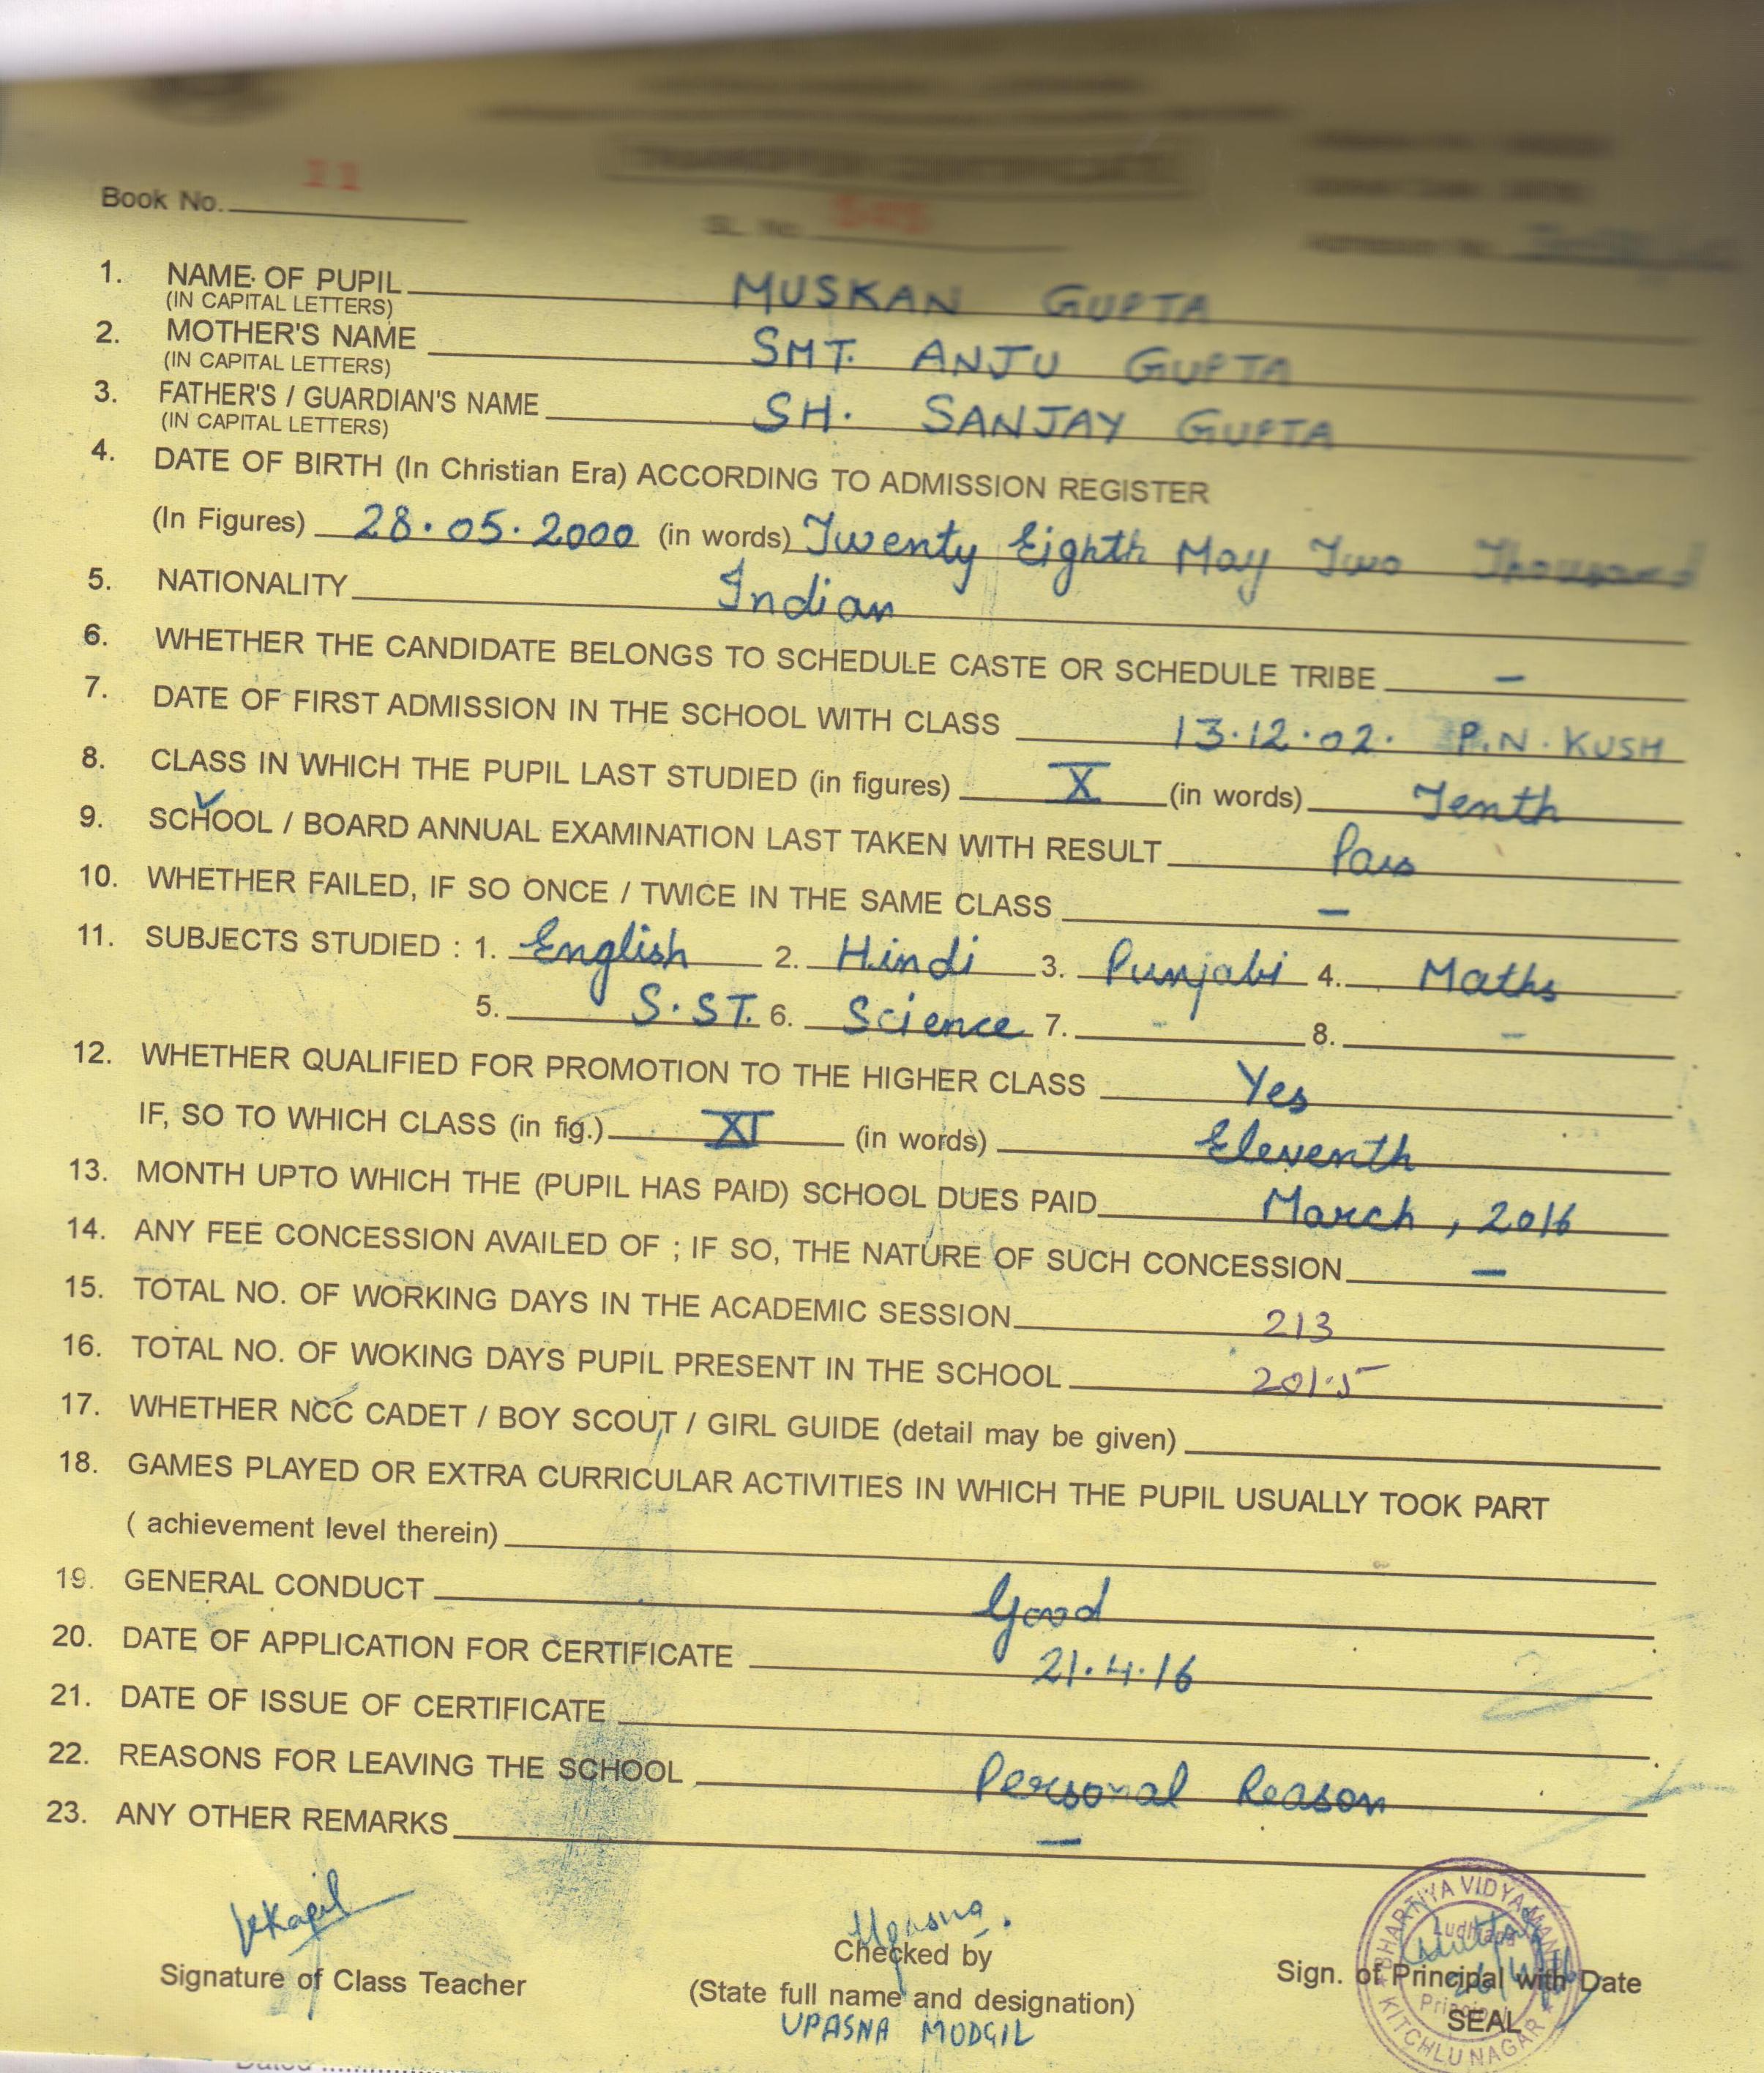 Book No. 11
SL. No.
1. NAME OF PUPIL MUSKAN GUPTA
(IN CAPITAL LETTERS)
2. MOTHER'S NAME SMT. ANJU GUPTA
(IN CAPITAL LETTERS)
3. FATHER'S / GUARDIAN'S NAME SH. SANJAY GUPTA
(IN CAPITAL LETTERS)
4. DATE OF BIRTH (In Christian Era) ACCORDING TO ADMISSION REGISTER
(In Figures) 28.05.2000 (in words) Twenty Eighth May Two Thousand
5. NATIONALITY Indian
6. WHETHER THE CANDIDATE BELONGS TO SCHEDULE CASTE OR SCHEDULE TRIBE –
7. DATE OF FIRST ADMISSION IN THE SCHOOL WITH CLASS 13.12.02. P.N. KUSH
8. CLASS IN WHICH THE PUPIL LAST STUDIED (in figures) X (in words) Tenth
9. SCHOOL / BOARD ANNUAL EXAMINATION LAST TAKEN WITH RESULT Pass
10. WHETHER FAILED, IF SO ONCE / TWICE IN THE SAME CLASS –
11. SUBJECTS STUDIED : 1. English 2. Hindi 3. Punjabi 4. Maths
5. S.ST. 6. Science 7. – 8. –
12. WHETHER QUALIFIED FOR PROMOTION TO THE HIGHER CLASS Yes
IF, SO TO WHICH CLASS (in fig.) XI (in words) Eleventh
13. MONTH UPTO WHICH THE (PUPIL HAS PAID) SCHOOL DUES PAID March, 2016
14. ANY FEE CONCESSION AVAILED OF ; IF SO, THE NATURE OF SUCH CONCESSION –
15. TOTAL NO. OF WORKING DAYS IN THE ACADEMIC SESSION 213
16. TOTAL NO. OF WOKING DAYS PUPIL PRESENT IN THE SCHOOL 201.5
17. WHETHER NCC CADET / BOY SCOUT / GIRL GUIDE (detail may be given)
18. GAMES PLAYED OR EXTRA CURRICULAR ACTIVITIES IN WHICH THE PUPIL USUALLY TOOK PART
( achievement level therein)
19. GENERAL CONDUCT Good
20. DATE OF APPLICATION FOR CERTIFICATE 21.4.16
21. DATE OF ISSUE OF CERTIFICATE
22. REASONS FOR LEAVING THE SCHOOL Personal Reason
23. ANY OTHER REMARKS –
VKapil
Upasna.
BHARTIYA VIDYA MAN
Ludhiana
Signature of Class Teacher
Checked by
Sign. of Principal with Date
(State full name and designation)
Principal
SEAL
UPASNA MODGIL
KITCHLU NAGAR
Dated